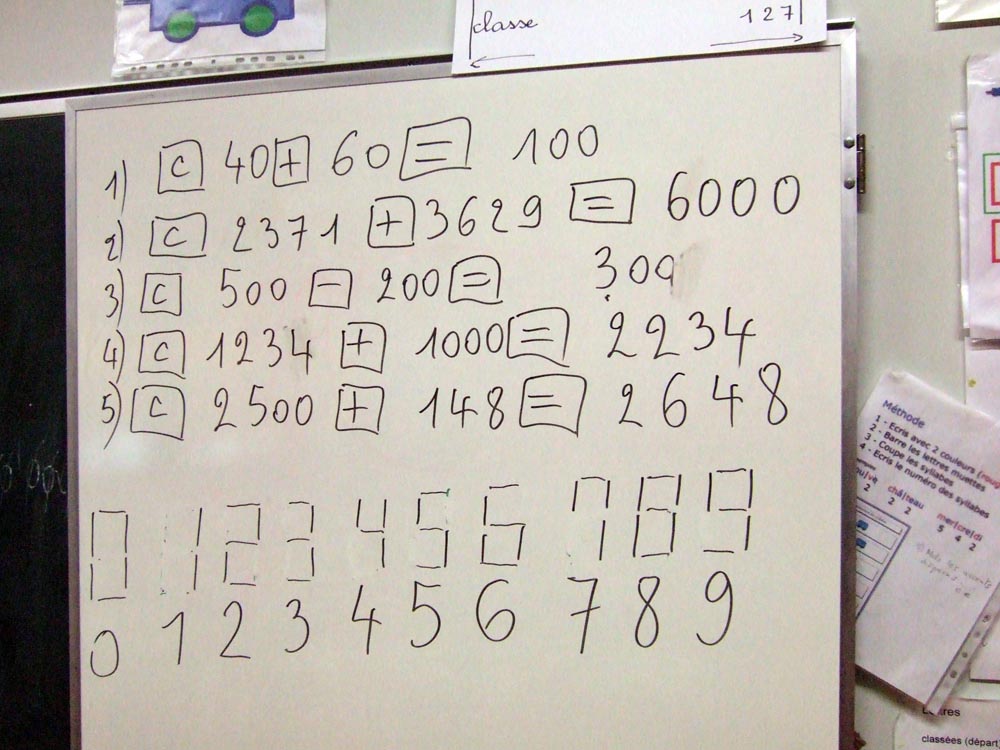 classe 127
1) C 40 + 60 = 100
2) C 2371 + 3629 = 6000
3) C 500 - 200 = 300
4) C 1234 + 1000 = 2234
5) C 2500 + 148 = 2648
0 1 2 3 4 5 6 7 8 9
0 1 2 3 4 5 6 7 8 9
Méthode
1 - Ecris avec 2 couleurs
2 - Barre les lettres muettes
3 - Coupe les syllabes
4 - Ecris le numéro des syllabes
châ/teau
mer/cre/di
2
2 2
5 4 2
classées (départ)